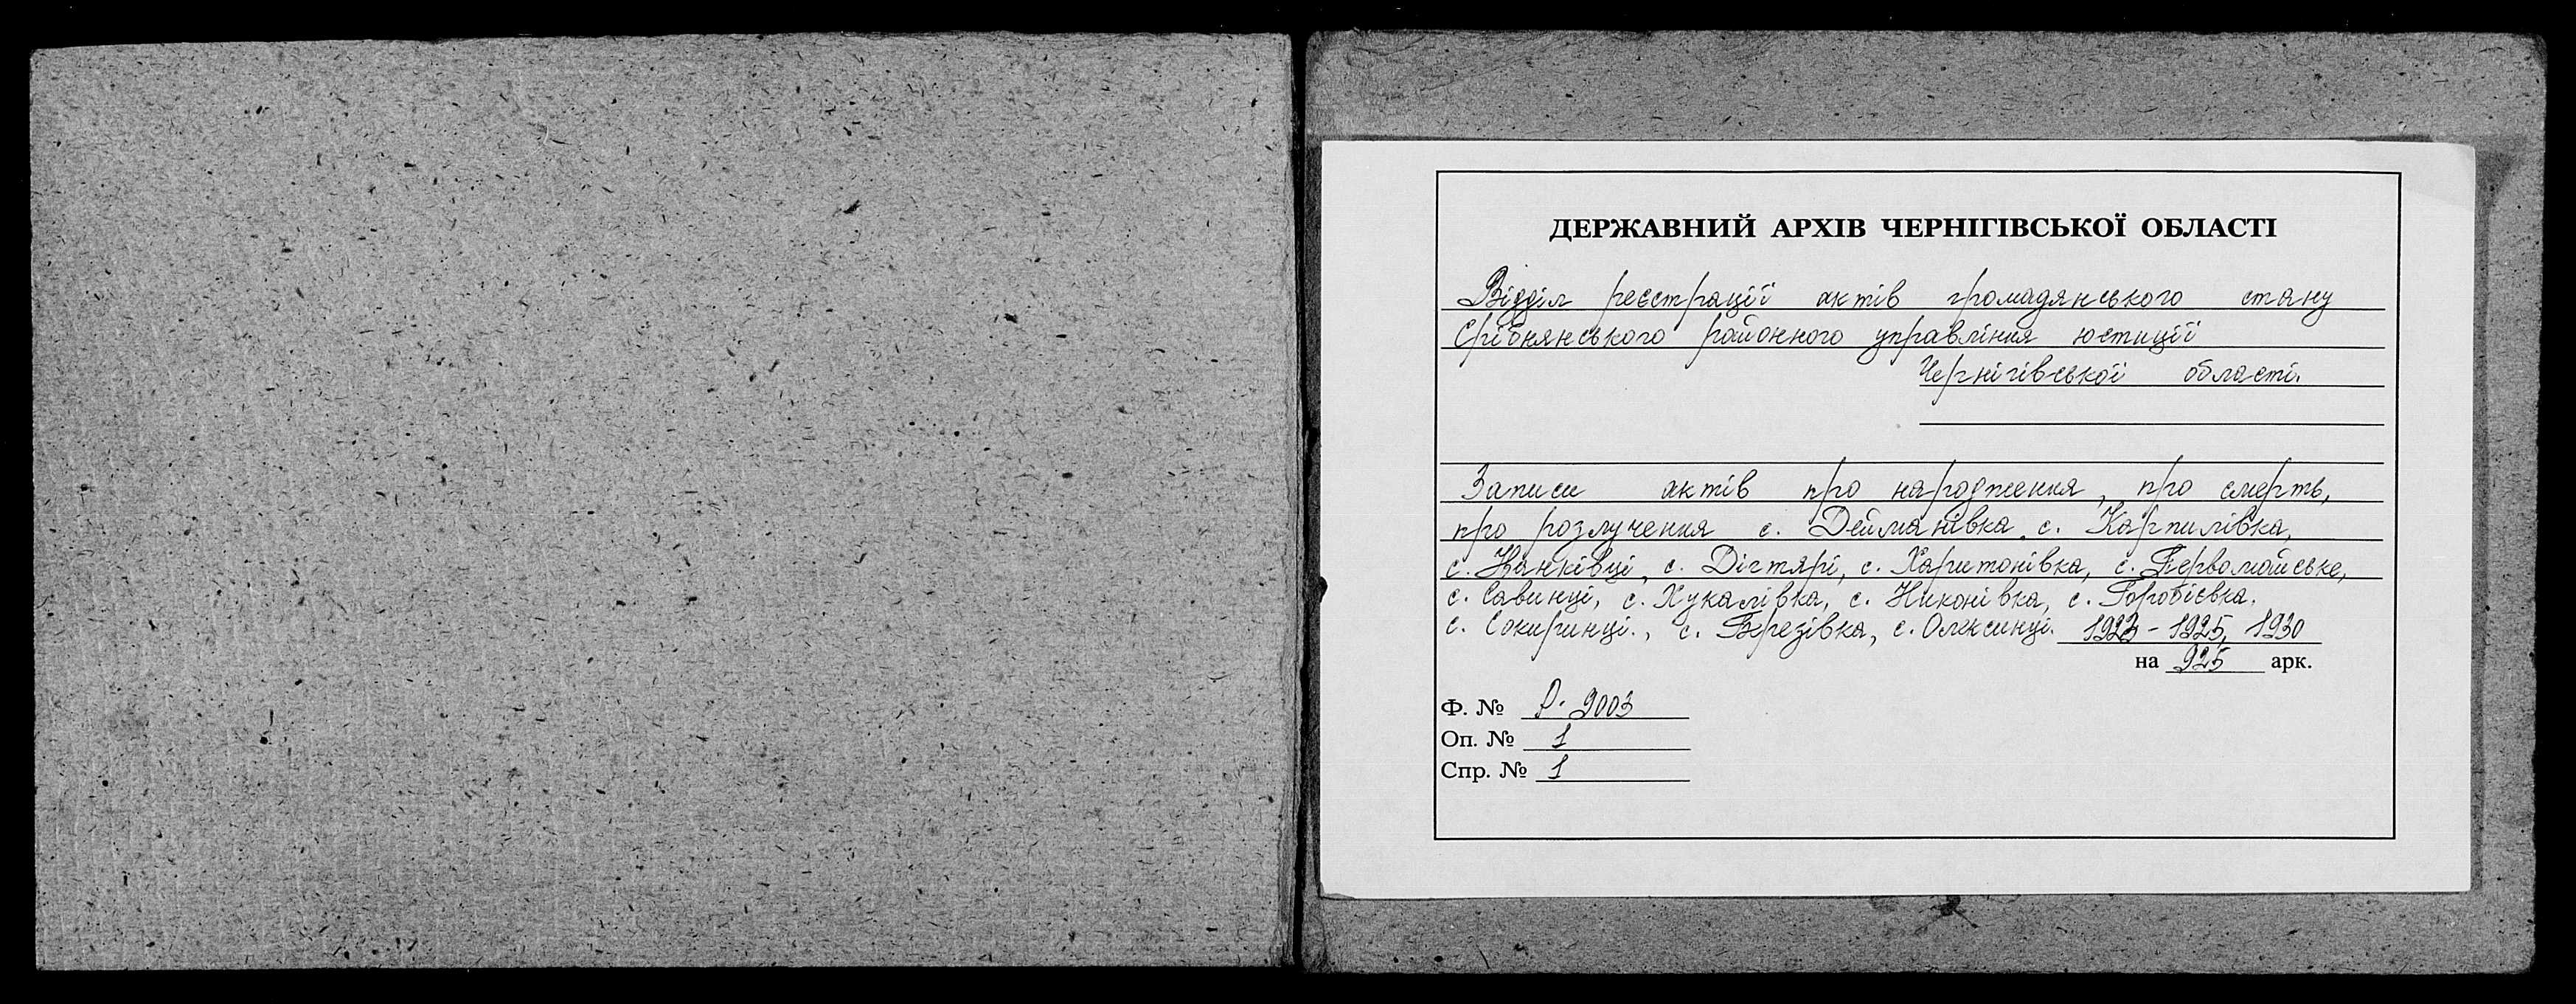 ДЕРЖАВНИЙ АРХІВ ЧЕРНІГІВСЬКОЇ ОБЛАСТІ
Відділ реєстрації актів громадянського стану
Срібнянського районного управління юстиції
Чернігівської області.
Записи актів про народження, про смерть,
про розлучення с. Дейманівка, с. Карпилівка,
с. Никківці, с. Дігтярі, с. Харитонівка, с. Первомайське,
с. Савинці, с. Хукалівка, с. Никонівка, с. Горобіївка.
с. Сокиринці., с. Березівка, с. Олексинці. 1923 - 1925, 1930
на 925 арк.
Ф. № Р. 9003
Оп. № 1
Спр. № 1